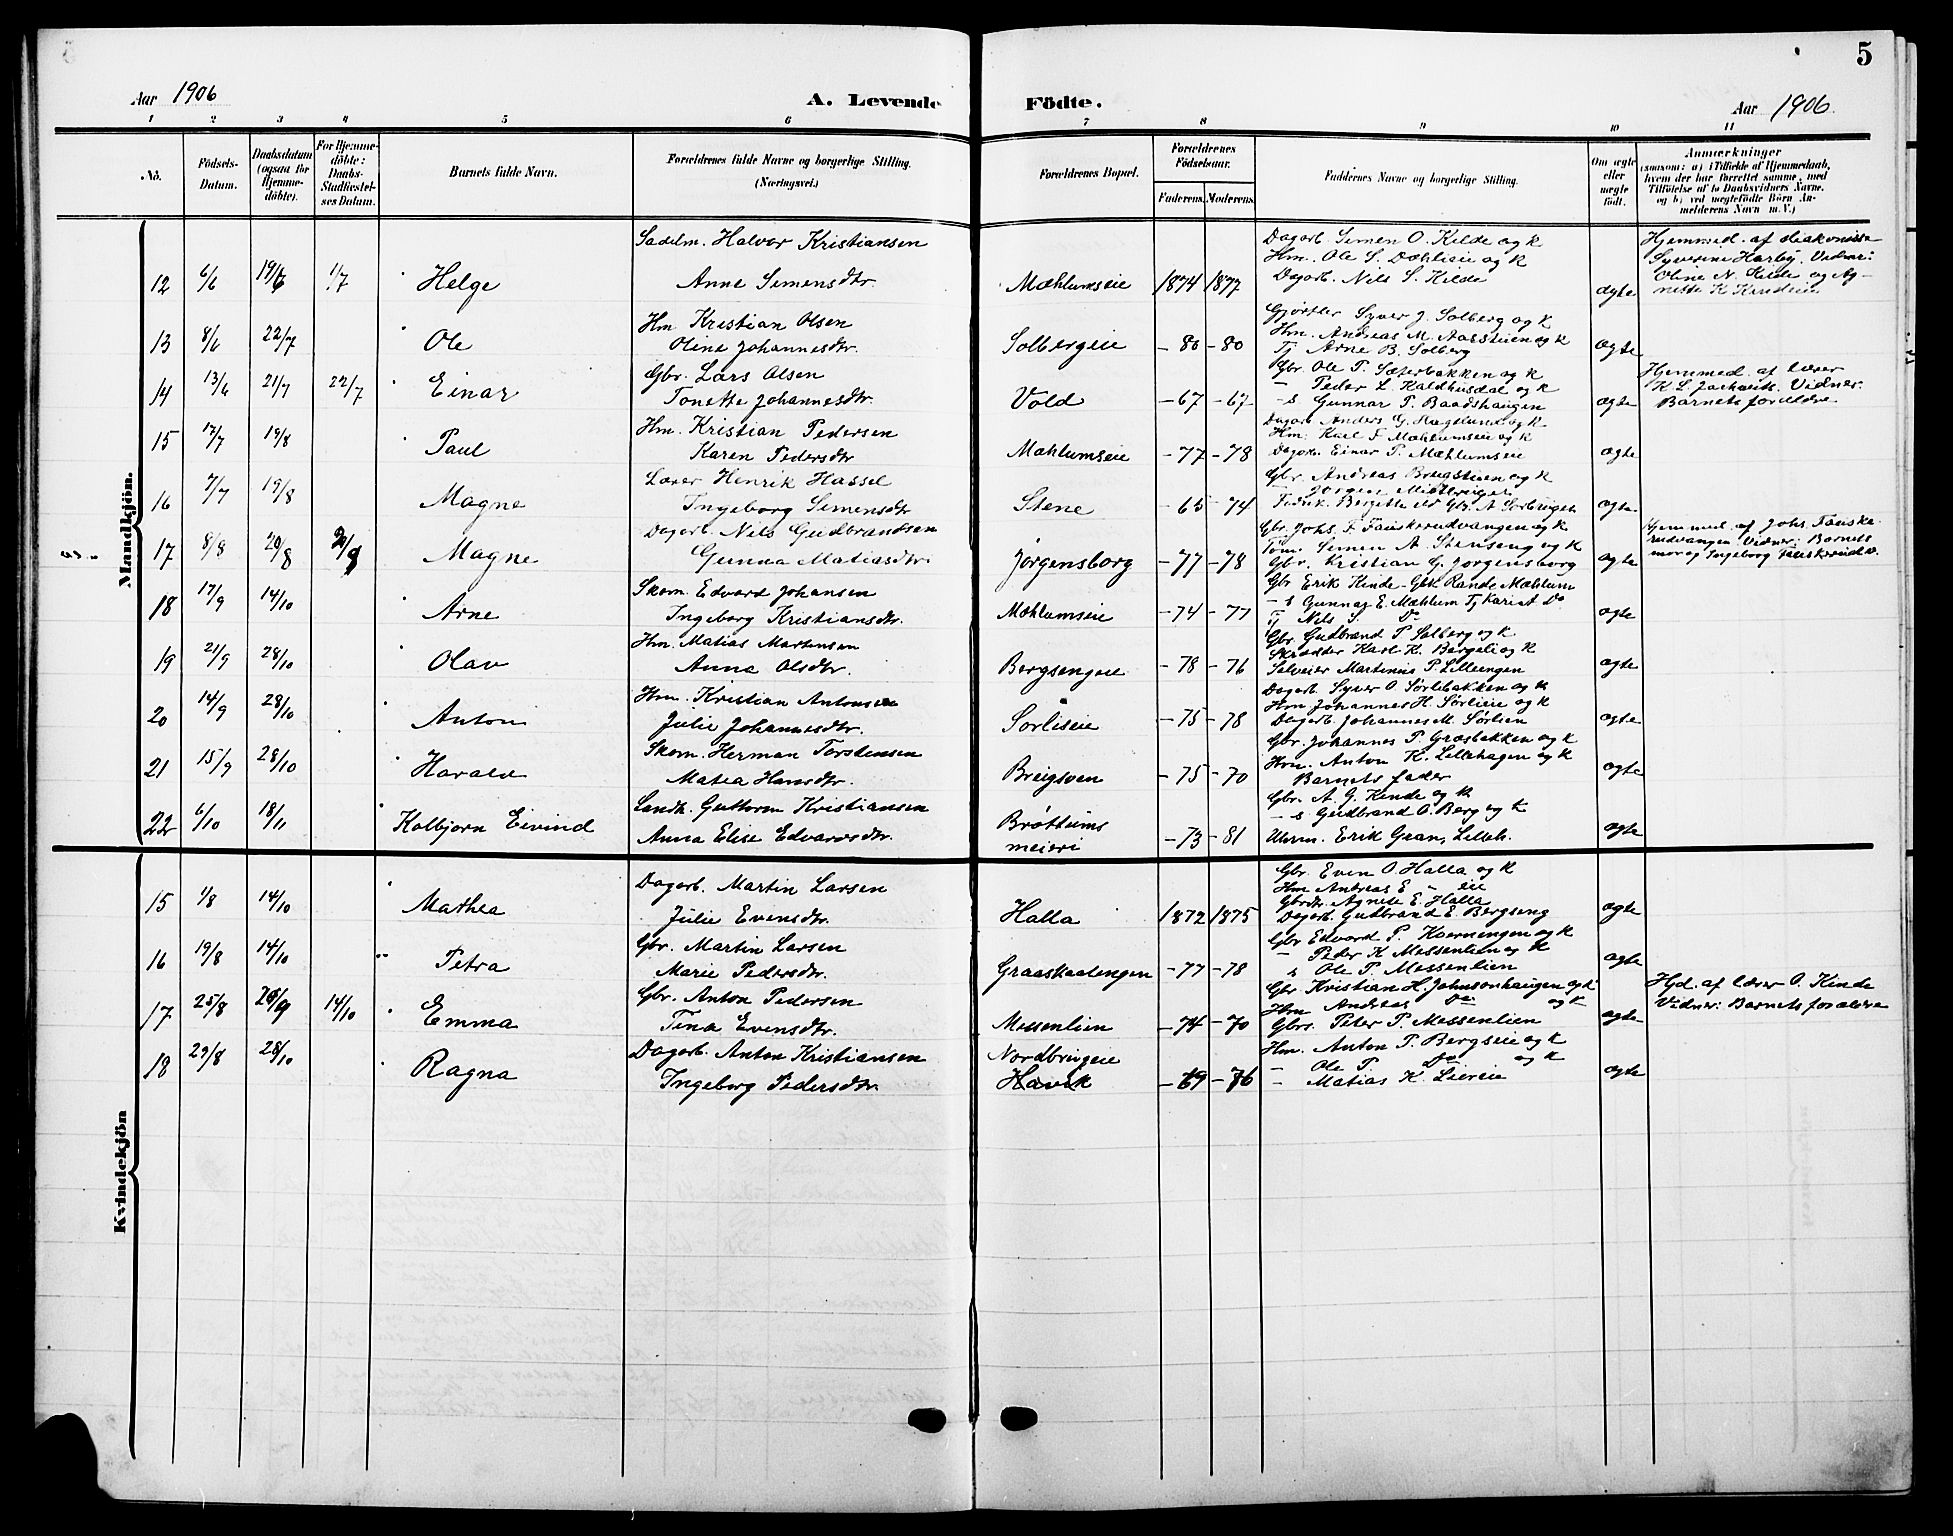 5
Aar 1906
A. Levende Födte.
Aar 1906.
1 2 3 4 5 6 7 8 9 10 11
No.
Födsels-Datum.
Daabsdatum (ogsaa for Hjemme-döbte).
For Hjemme-döbte: Daabs-Stadfæstel-ses Datum.
Barnets fulde Navn.
Forældrenes fulde Navne og borgerlige Stilling.
(Næringsvei.)
Forældrenes Bopæl.
Forældrenes Födselsaar.
Faderens. Moderens.
Faddernes Navne og borgerlige Stilling.
Om ægte eller uægte födt.
Anmærkninger
(saasom: a) i Tilfælde af Hjemmedaab,
hvem der har forrettet samme, med
Tilföielse af to Daabsvidners Navne.
og b) ved uægtefödte Börn An-
melderens Navn m. V.)
Mandkjön.
Sadelm. Halvor Kristiansen
Anne Simensdtr.
12 6/6 19/6 1/7 Helge
Mæhlumseie 1874 1877
Dagarb. Simen O. Kilde og k
Hm. Ole S. Dæhlieie og k
Dagarb. Nils S. Kilde
ægte
Hjemmed. af diakonisse
Syverine Harby. Vidner:
Oline N. Kilde og Ag-
nette K.
13 8/6 22/7 Ole
Hm Kristian Olsen
Oline Johannesdtr.
Solbergeie -80 -80
Syver J. Solberg og k
Hm. Andreas M. og k
Tj Arne B. Solberg
ægte
14 13/6 21/7 22/7 Einar
Gbr. Lars Olsen
Tonette Johannesdtr.
Vold -67 -67
Gbr. Ole P. Sæterbakken og k
- Peder L. Kaldhusdal og k
- s Gunnar P. Baadshaugen
ægte
Hjemmed. af lærer
K. L. Vidner:
Barnets forældre
15 17/7 19/8 Paul
Hm. Kristian Pedersen
Karen Pedersdtr
Mæhlumseie -77 -78
Dagarb Anders G. og k
Hm: Karl F. Mæhlumseie og k
Einar P. Mæhlumseie
ægte
16 7/7 19/8 Magne
Lærer Henrik Hassel
Ingeborg Simensdtr
Stene -65 -74
Gbr. Andreas og k
ægte
17 8/8 20/8 Magne
Dagarb. Nils Gudbrandsen
Gunna Matiasdtr.
Jörgensborg -77 -78
Gbr. Johs. F. Fauskerudvangen og k
Töm. Simen A. Stenseng og k
Gbr. Kristian G. Jörgensborg
ægte
Hjemmed. af Johs. Fauske-
rudvangen Vidner: Barnets
mor og Ingeborg
18 17/9 14/10 Arne
Skom. Edvard Johansen
Ingeborg Kristiansdtr.
Mæhlumseie -74 -77
Gbr Erik Kinde - Rande Mæhlum
- s Gunnar E. Mæhlum Tj Kari Do
Tj Nils S. Do
ægte
19 21/9 28/10 Olav
Hm. Matias Martensen
Anna Olsdtr.
Bergsengeie -78 -76
Gbr. Gudbrand P. Solberg og k
Skrædder Karl K. Bergeli og k
Selveier Martinus P. Lilleengen
ægte
20 14/9 28/10 Anton
Hm. Kristian Antonsen
Julie Johannesdtr.
Sörlieie -75 -78
Dagarb. Syver O. Sörlibakken og k
Hm Johannes H. Sörlieie og k
Dagarb. Johannes M. Sörlien
ægte
21 15/9 28/10 Harald
Skom. Herman Torstensen
Matea Hansdtr.
Breigsven -75 -70
Gbr. Johannes P. Græsbakken og k
Hm. Anton K. Lillehagen og k
Barnets fader
ægte
22 6/10 18/11 Kolbjörn Eivind
Landh. Guttorm Kristiansen
Anna Elise Edvardsdtr.
Bröttums meieri -73 -81
Gbr. A. G. Kinde og k
- s Gudbrand O. Berg og k
Urm. Erik Gran, Lilleh.
ægte
Kvindekjön
15 1/8 14/10 Mathea
Dagarb. Martin Larsen
Julie Evensdtr.
Halla 1872 1875
Gbr. Even O. Halla og k
Hm Andreas E - eie
Gbrdtr. Agnete E. Halla
Dagarb. Gudbrand E. Bergseng
ægte
16 19/8 14/10 Petra
Gbr. Martin Larsen
Marie Pedersdtr.
Graaskaalengen -77 -78
Gbr Edvard P. Kværningen og k
- Peder K Messenlien og k
s Ole P. Messenlien
ægte
17 25/8 14/10 Emma
Gbr. Anton Pedersen
Tina Evensdtr.
Messenlien -74 -70
Gbr Kristian H. Johnsonhaugen og k
Hm Andreas Do og k
Gbrs. Peter P. Messenlien
ægte
Hjd. af lærer O. Kinde
Vidner: Barnets forældre
18 29/8 28/10 Ragna
Dagarb. Anton Kristiansen
Ingeborg Pedersdtr.
Nordbrugeie
Havik -69 -76
Hm. Anton P. Bergseie og k
- Ole P. Do og k
- Matias K. Liereie
ægte